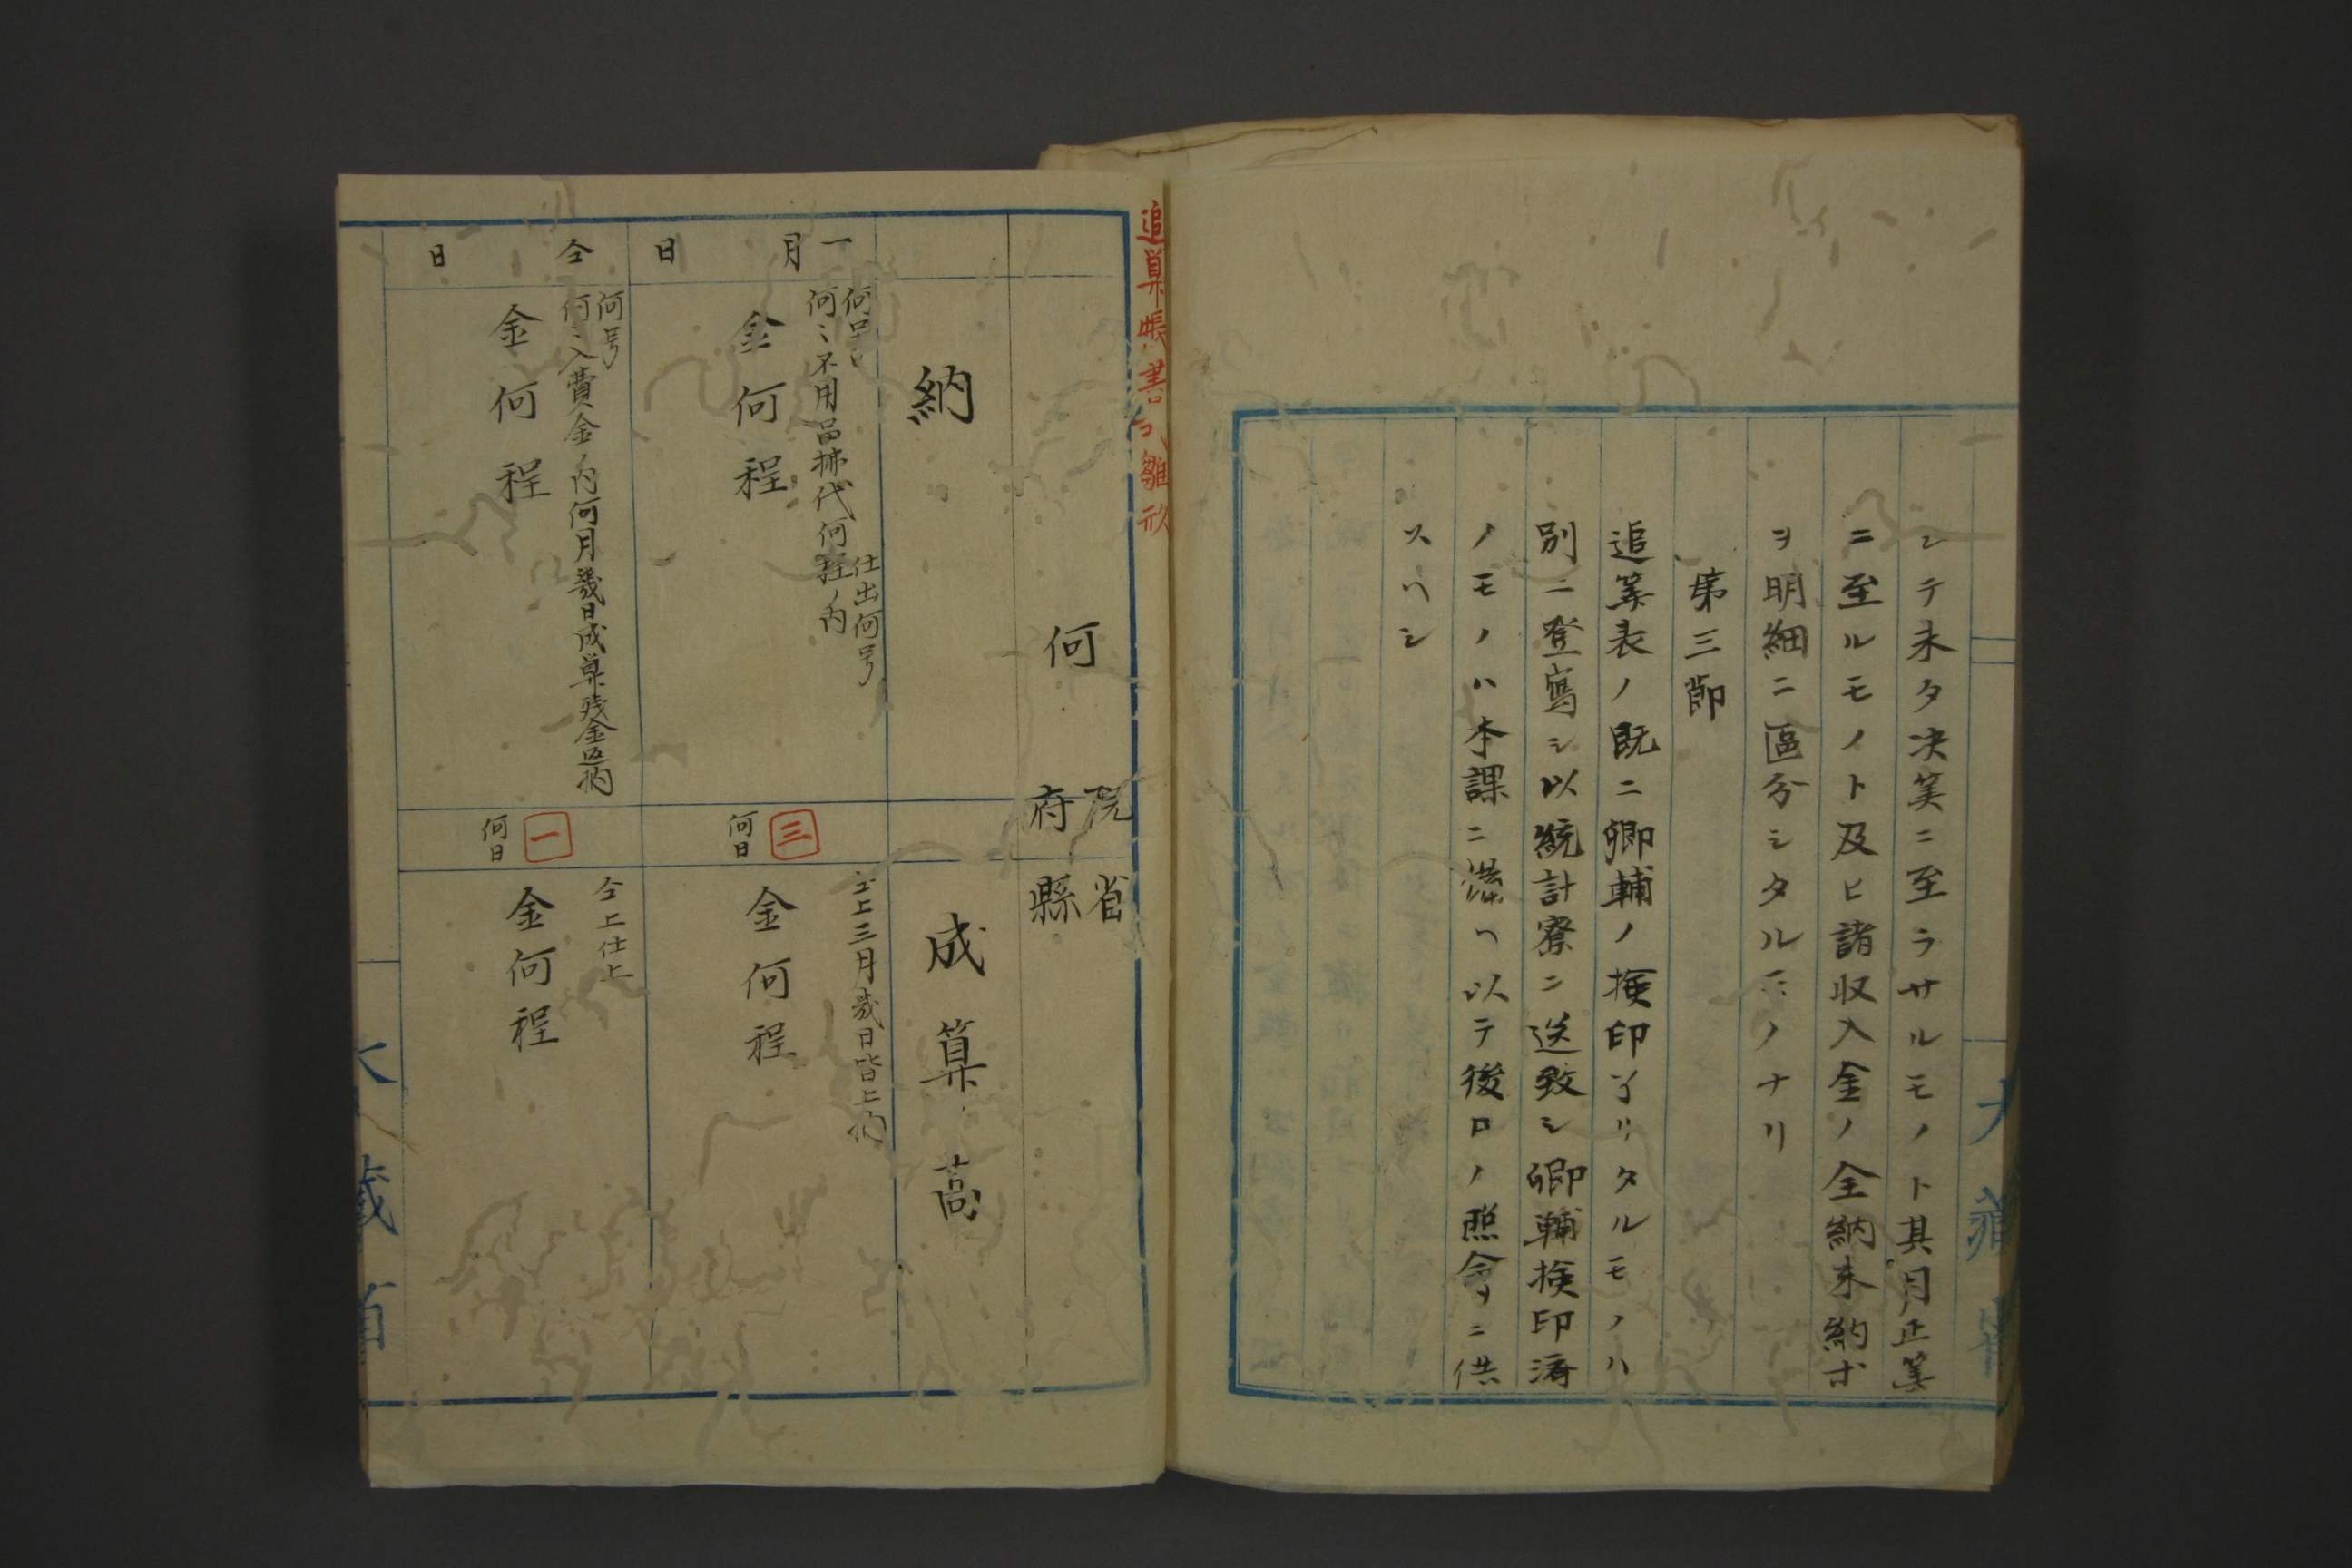 シテ未タ决算ニ至ラサルモノト其月正算
ニ至ルモノト及ヒ諸収入金ノ全納未納ホ
ヲ明細ニ區分シタルモノナリ
第三節
追算表ノ既ニ卿輔ノ検印了リタルモノハ
別ニ登寫シ以統計寮ニ送致シ卿輔検印済
ノモノハ本課ニ蔵ヘ以テ後日ノ照會ニ供
スヘシ
追算帳書式雛形
何 院省府縣
納
成算高
一月 日
何号 仕出何号
何〻不用品払代何程ノ内
金何程
三
何日
仝上三月幾日皆上納
金何程
仝 日
何号
何〻入費金ノ内何月幾日成算残金返納
金何程
一
何日
仝上仕上
金何程
大蔵省